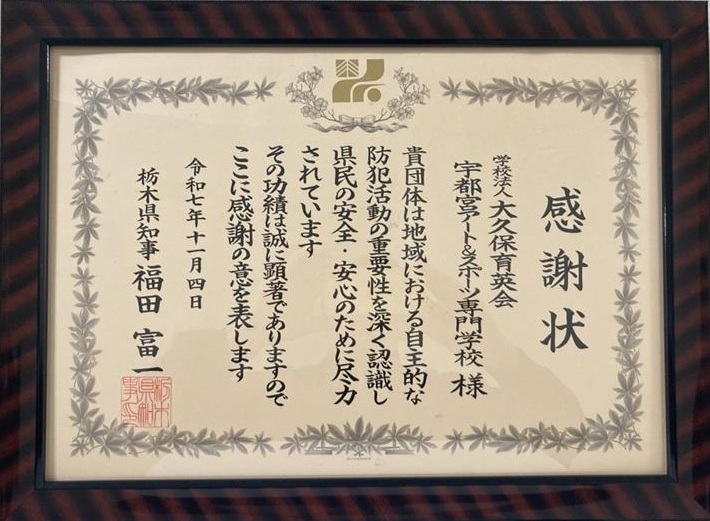 感謝状
学校法人 大久保育英会
宇都宮アート&スポーツ専門学校 様
貴団体は地域における自主的な
防犯活動の重要性を深く認識し
県民の安全・安心のために尽力
されています
その功績は誠に顕著でありますので
ここに感謝の意を表します
令和七年十一月四日
栃木県知事 福田富一